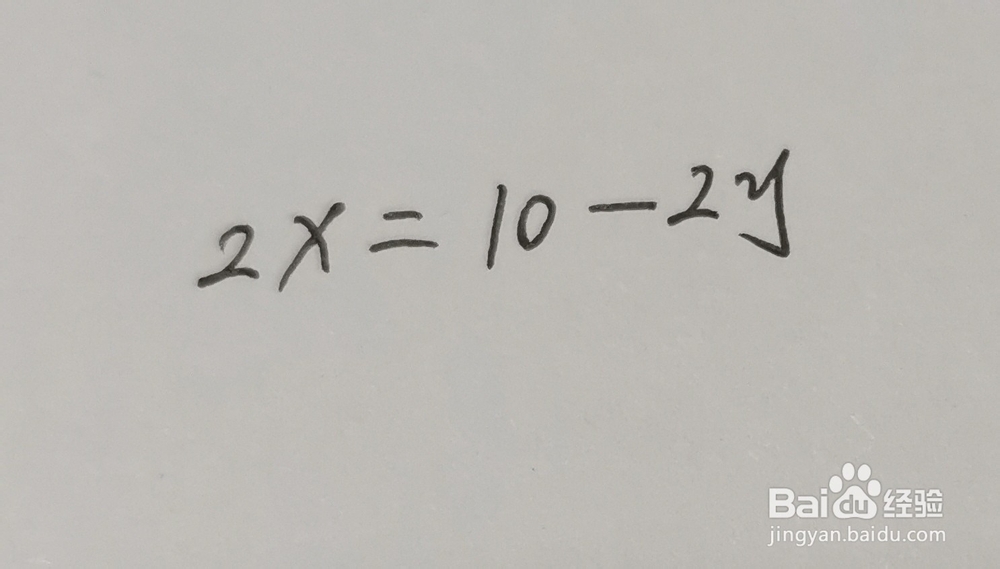 2x = 10 - 2y
Baidu经验
jingyan.baidu.com